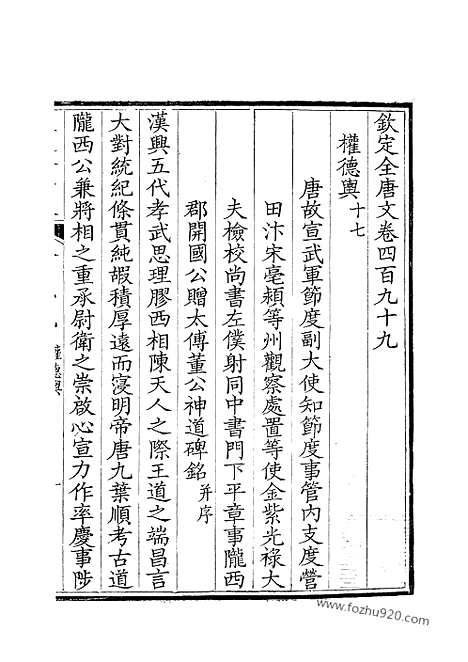 欽定全唐文卷四百九十九
權德輿十七
唐故宣武軍節度副大使知節度事管內支度營
田汴宋亳潁等州觀察處置等使金紫光祿大
夫檢校尚書左僕射同中書門下平章事隴西
郡開國公贈太傅董公神道碑銘并序
漢興五代孝武思理膠西相陳天人之際王道之端昌言
大對統紀條貫純嘏積厚遠而寖明帝唐九葉順考古道
隴西公兼將相之重承尉衛之崇啟心宣力作率慶事陟
權德輿
www.fozhu920.com